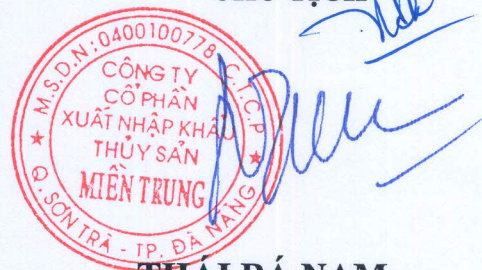 CHỦ TỊCH
M.S.D.N: 0400100778 - C.T.C.P
CÔNG TY
CỔ PHẦN
XUẤT NHẬP KHẨU
THỦY SẢN
MIỀN TRUNG
Q. SƠN TRÀ - TP. ĐÀ NẴNG
THÁI BÁ NAM